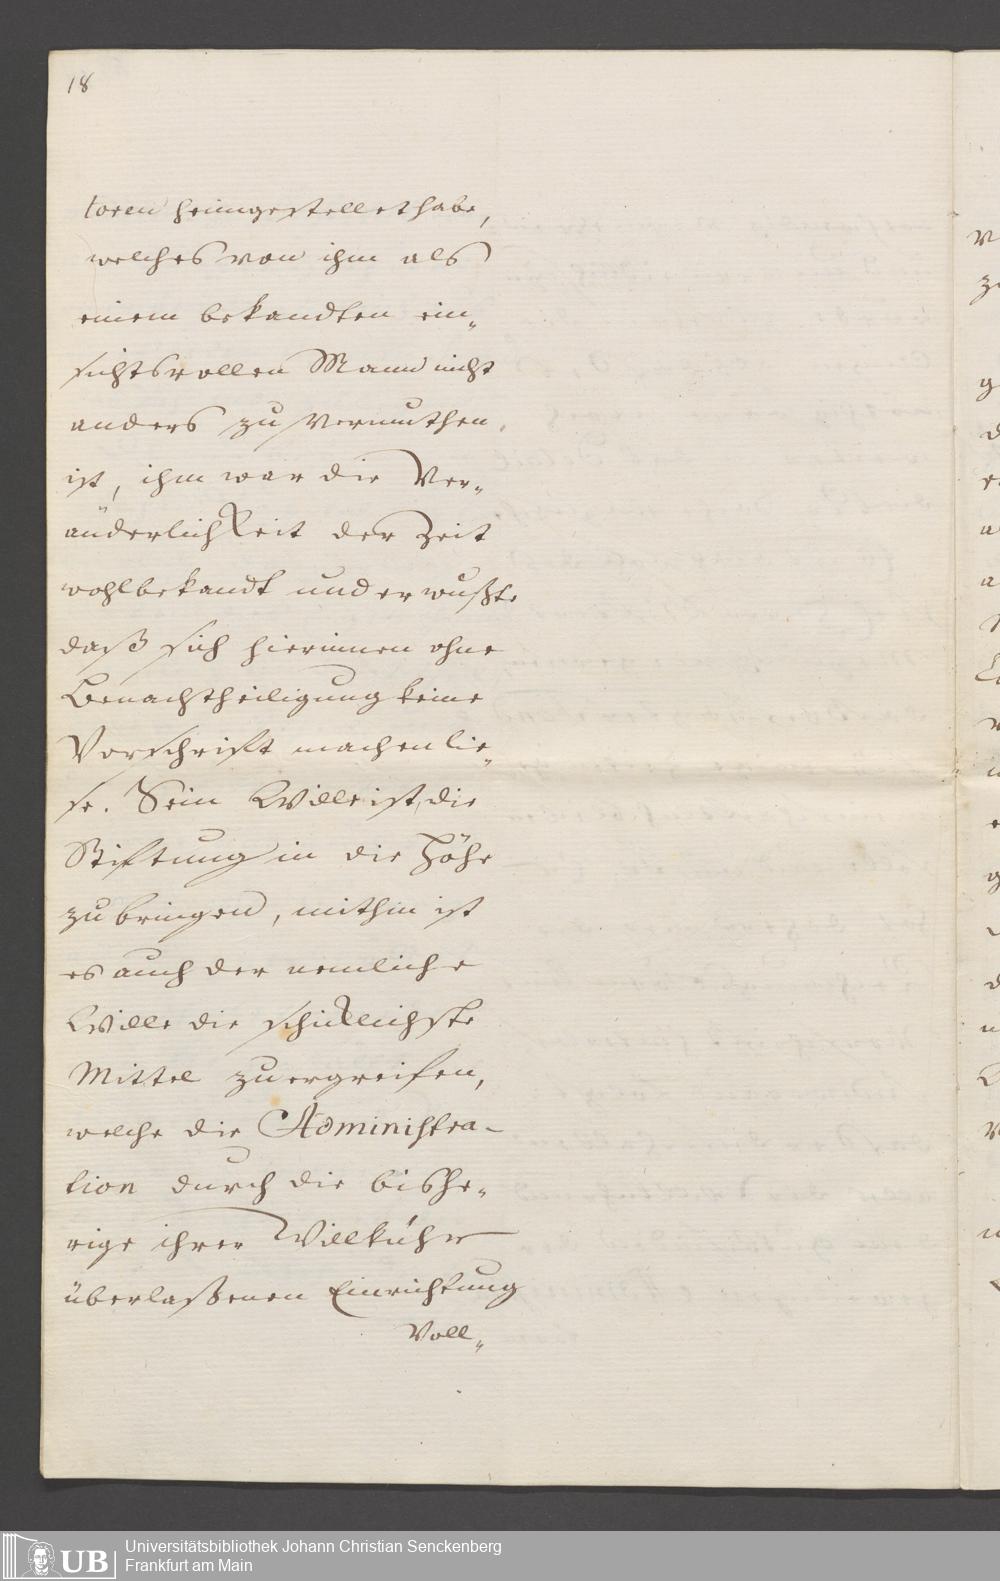 18
toren heimgestellet habe,
welches von ihm als
einem bekandten ein„
sichtsvollen Mann nicht
anders zu vermuthen
ist, ihm war die Ver„
änderlichkeit der Zeit
wohlbekandt und er wußte
daß sich hierinnen ohne
Benachtheiligung keine
Vorschrift machen lie„
se. Sein Wille ist, die
Stiftung in die Höhe
zu bringen, mithin ist
es auch der nemliche
Wille die schicklichste
Mittel zu ergreifen,
welche die Administra-
tion durch die bishe„
rige ihrer Willkühr
überlaßenen Einrichtung
Voll„
UB
Universitätsbibliothek Johann Christian Senckenberg
Frankfurt am Main